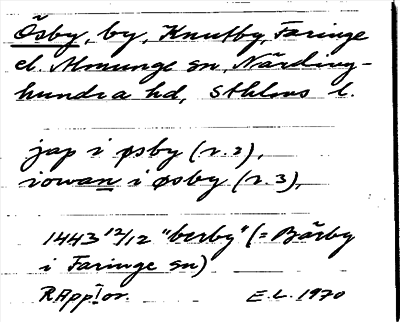 Ösby, by, Knutby, Faringe
el. Almunge sn, Närding-
hundra hd, Sthlms l.
jap i øsby (r. 2),
iowan i øsby (r. 3),
1443 12/12 "berby" (= Bärby
i Faringe sn)
RAppror. E.L. 1970